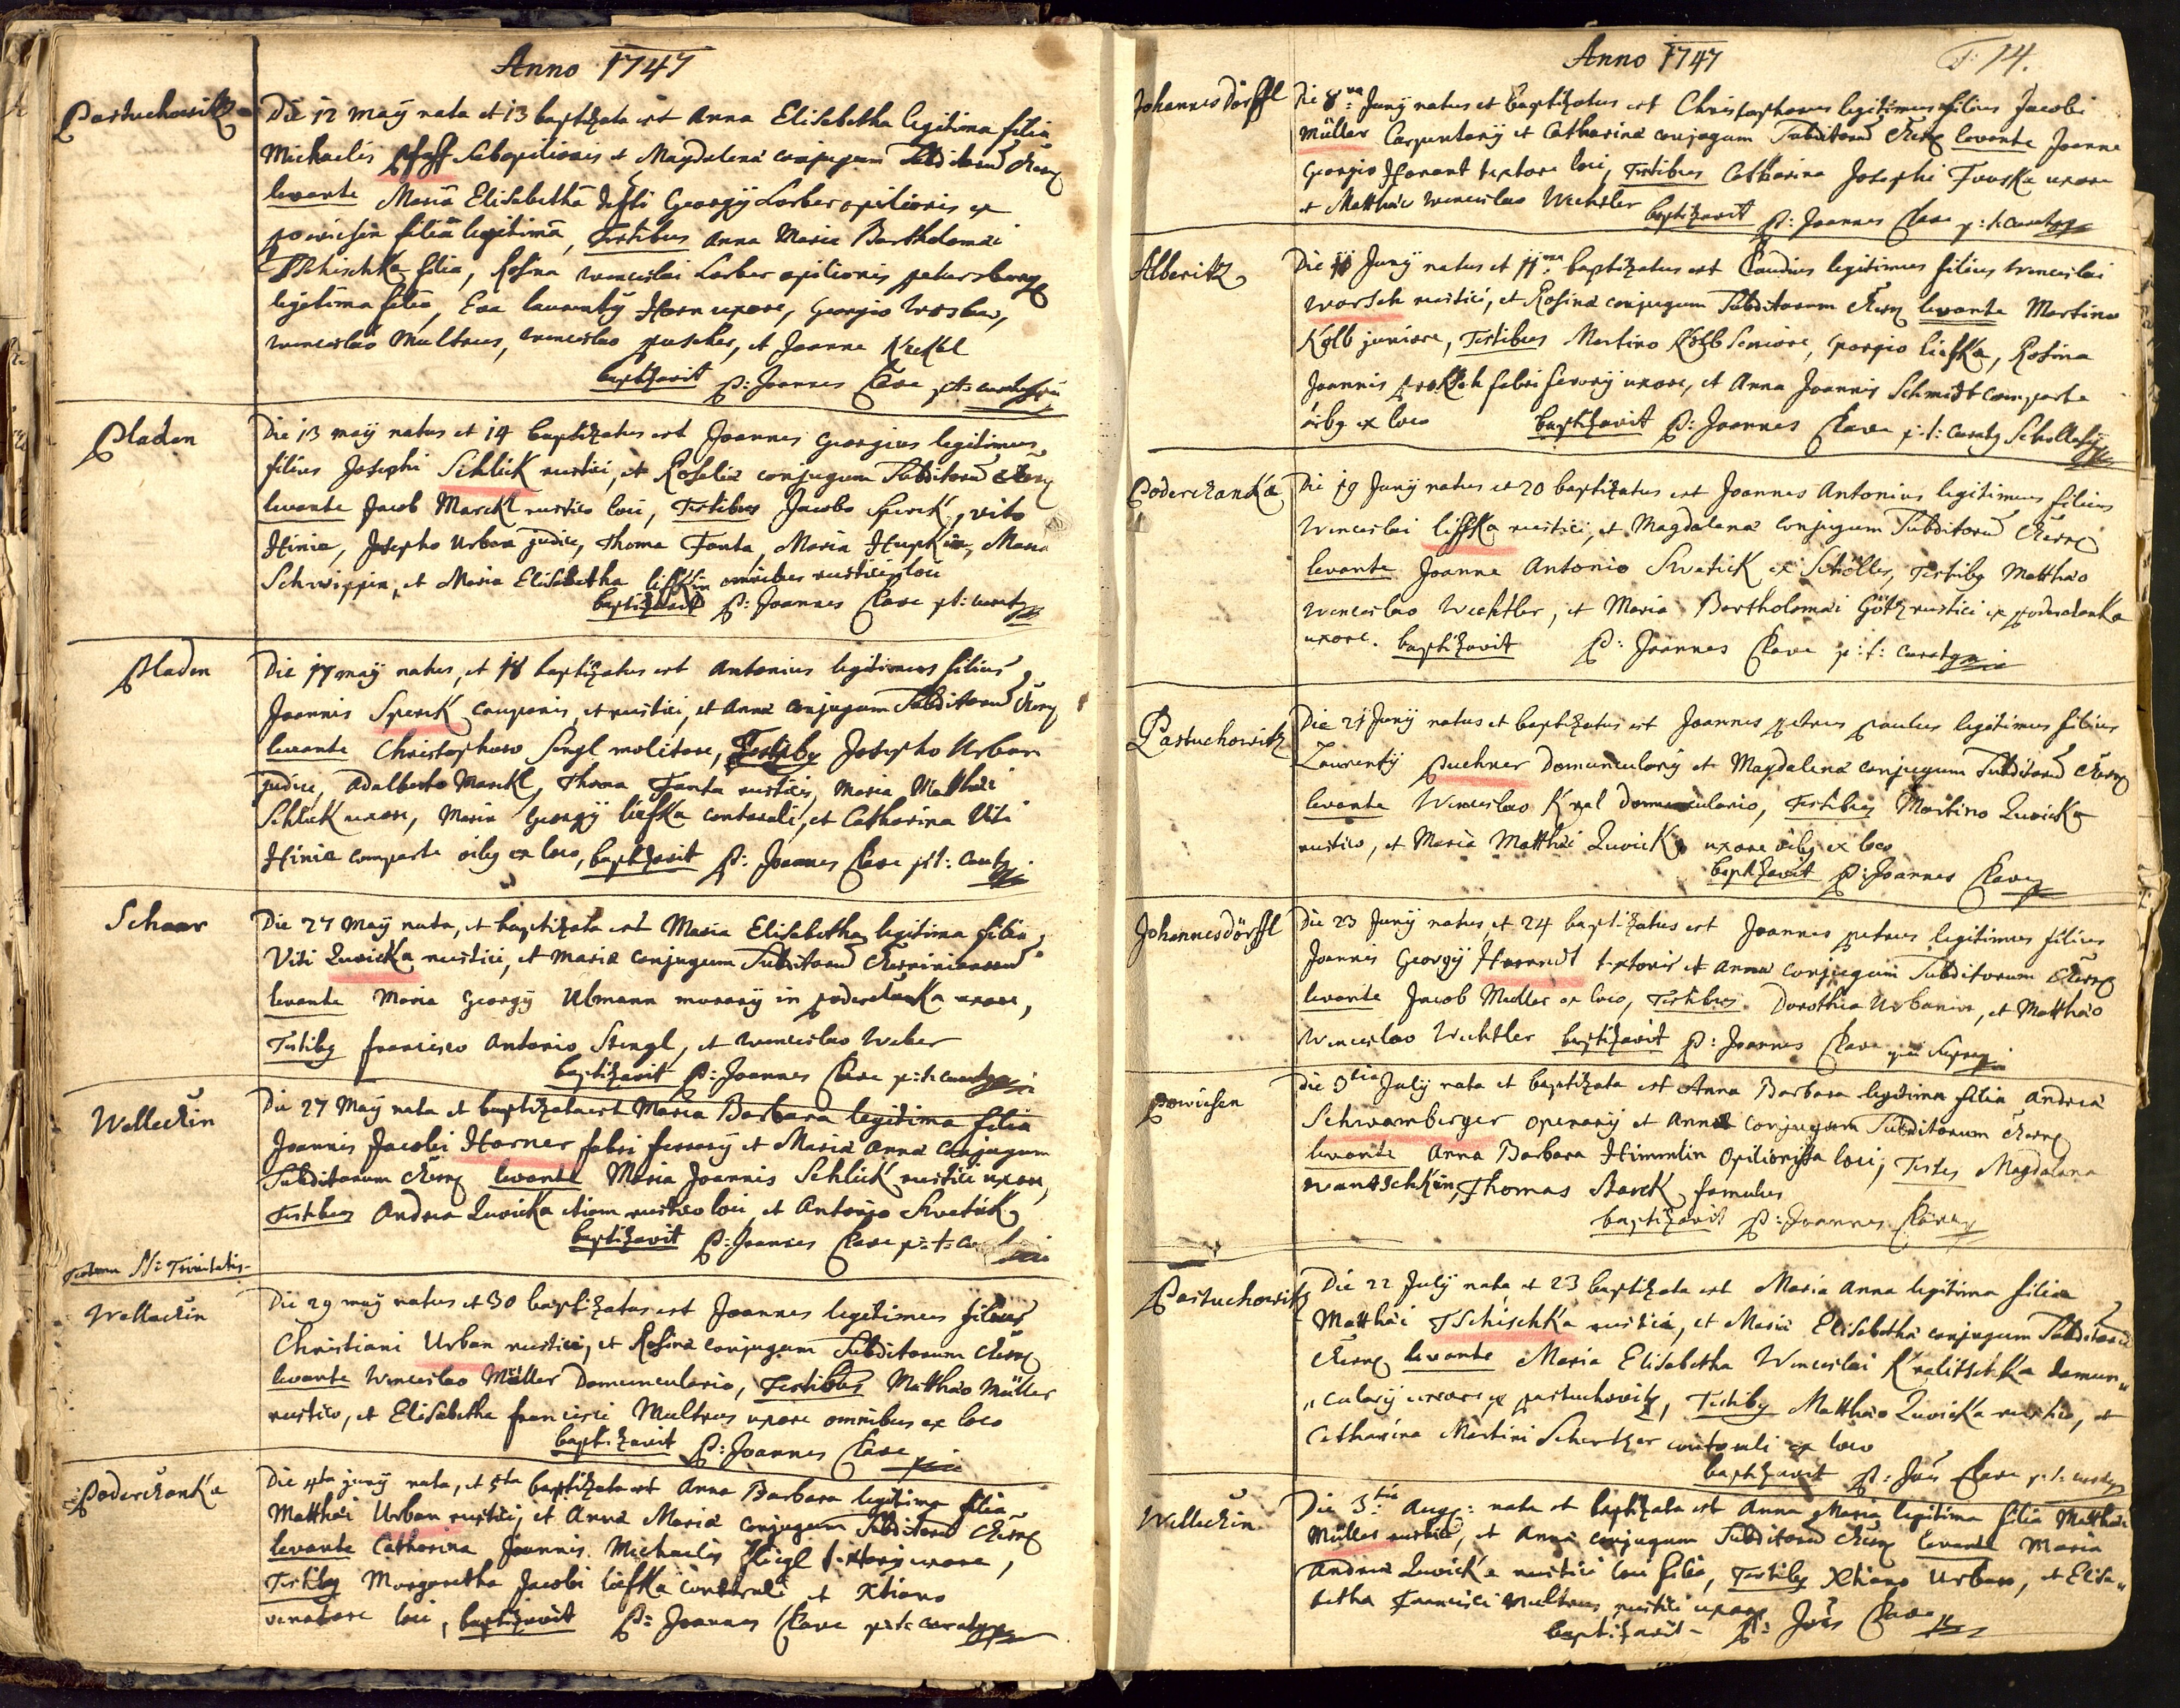 Anno 1747
Pastuchowitz
Die 12 Maÿ nata et 13 baptizata est Anna Elisabetha legitima filia
Michaelis Pfaff Subopilionis et Magdalenæ conjugum Subditorum
levante Maria Elisabetha Georgÿ Lorber opilionis ex
Powiesen filia legitima, Testibus Anna Maria Bartholomæi
Tschischka filia, Rosina Wenceslai Lorber opilionis
legitima filia, Eva Laurentÿ Horn uxore, Georgio
Wenceslao Multrus, Wenceslao puscher, et Joanne
baptizavit P: Joannes Clave
Pladen
Die 13 maÿ natus et 14 baptizatus est Joannes Georgius legitimus
filius Josephi Schlick rustici, et Rosaliæ conjugum Subditorum
levante Jacob Marckl rustico loci, Testibus Jacobo Sperck, vito
Hinie, Josepho Urban judice, Thoma Fanta, Maria Maria
et Maria Elisabetha omnibus loci
baptizavit P: Joannes Clave p:t: curatq
Pladen
Die 17 maÿ natus, et 18 baptizatus est Antonius legitimus filius
Joannis Sperck cauponis, et rustici, et Annæ conjugum Subditorum
levante Christophoro Sengl molitore, Testibq Josepho Urban
judice, Adalberto Marckl, Thoma Fanta rusticis, Maria Matthæi
Schlick uxore, Maria Georgÿ liefka contorali, et Catharina Viti
Hinie comparte oibq ex loco, baptizavit P: Joannes Clave p:t: curatq
Schaar
Die 27 Maÿ nata, et baptizata est Maria Elisabetha legitima filia
Viti Zwicka rustici, et Mariæ conjugum Subditorum
levante Maria Georgÿ Ulmann murarÿ in uxore,
Testibq Francisco Antonio Stengl, et Wenceslao Weber
baptizavit P: Joannes Clave p:t: curatq
Welleczin
Die 27 Maÿ nata et baptizata est Maria Barbara legitima filia
Joannis Jacobi Horner fabri ferrarÿ et Mariæ Annæ conjugum
Subditorum levante Maria Joannis Schlick rustici uxore,
Testibus Andrea Zwicka etiam rustico loci, et Antonio Swetick
baptizavit P: Joannes Clave p:t:
Festum SS: Trinitatis
Welleczin
Die 29 maÿ natus et 30 baptizatus est Joannes legitimus filius
Christiani Urban rustici, et Rosinæ conjugum Subditorum
levante Wenceslao Müller Domunculario, Testibus Matthæo Müller
rustico, et Elisabetha Francisci Multrus uxore omnibus ex loco
baptizavit P: Joannes Clave
Poderczanka
Die 4ta junÿ nata, et 5ta baptizata est Anna Barbara legitima filia
Matthæi Urban rustici, et Annæ Mariæ conjugum Subditorum
levante Catharina Joannis Michaelis uxore,
Testibq Margaretha Jacobi liefka contorali et Xtiano
venatore loci, baptizavit P: Joannes Clave p:t: curatq
Anno 1747
F: 14.
Johannesdörffl
Die 8va Junÿ natus et baptizatus est Christophorus legitimus filius Jacobi
Müller Carpentarÿ et Catharinæ conjugum Subditorum levante Joanne
Georgio textore loci, Testibus Catharina Josephi Fouska uxore
et Matthæo Wenceslao Wechtler baptizavit P: Joannes Clave p:t: curatq
Alberitz
Die Junÿ natus et 11ma baptizatus est Claudius legitimus filius Wenceslai
Worsch rustici, et Rosinæ conjugum Subditorum levante Martino
Kolb juniore, Testibus Martino Kolb Seniore, Georgio liefka, Rosina
Joannis Proksch fabri ferrarÿ uxore, et Anna Joannis Schmidt comparte
oibq ex loco baptizavit P: Joannes Clave p:t: curatq
Poderczanka
Die 19 Junÿ natus et 20 baptizatus est Joannes Antonius legitimus filius
Wenceslai liffka rustici, et Magdalenæ conjugum Subditorum
levante Joanne Antonio Swetick ex Schölles, Testibq Matthæo
Wenceslao Wechtler, et Maria Bartholomæi Götz rustici ex
uxore. baptizavit P: Joannes Clave p:t: curatq
Pastuchowitz
Die 21 Junÿ natus et baptizatus est Joannes petrus paulus legitimus filius
Laurentÿ Puchner Domuncularÿ et Magdalenæ conjugum Subditorum
levante Wenceslao Kral Domunculario, Testibus Martino Zwicka
rustico, et Maria Matthæi Zwicka uxore oibq ex loco
baptizavit P: Joannes Clave
Johannesdörffl
Die 23 Junÿ natus et 24 baptizatus est Joannes petrus legitimus filius
Joannis Georgÿ textoris et Annæ conjugum Subditorum
levante Jacob Muller ex loco, Testibus Dorothea Urbanin, et Matthæo
Wenceslao Wechtler baptizavit P: Joannes Clave
Powiesen
Die 3tia Julÿ nata et baptizata est Anna Barbara legitima filia Andreæ
Schwamberger operarÿ et Annæ conjugum Subditorum
levante Anna Barbara Himmlin opilionissa loci, Testes Magdalena
Thomas Barck famulus
baptizavit P: Joannes Clave
Pastuchowitz
Die 22 Julÿ nata et 23 baptizata est Maria Anna legitima filia
Matthæi Tschischka rustici, et Mariæ Elisabethæ conjugum Subditorum
levante Maria Elisabetha Wenceslai Kralitschka domun„
„cularÿ uxore ex pastuchovitz, Testibq Matthæo Zwicka rustico, et
Catharina Martini contorali ex loco
baptizavit P: Jões Clave p:t: curatq
Welleczin
Die 3tia Aug: nata et baptizata est Anna Maria legitima filia Matthæi
Müller rustici, et Annæ conjugum Subditorum levante Maria
Andreæ Zwicka rustici loci filia, Testibq Xtiano Urban, et Elisa„
betha Francisci Multrus rustici uxore
baptizavit P: Jões Clave